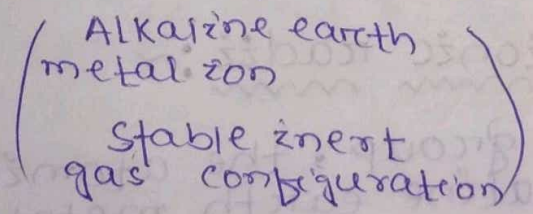 (Alkaline earth
metal ion
Stable inert
gas configuration)